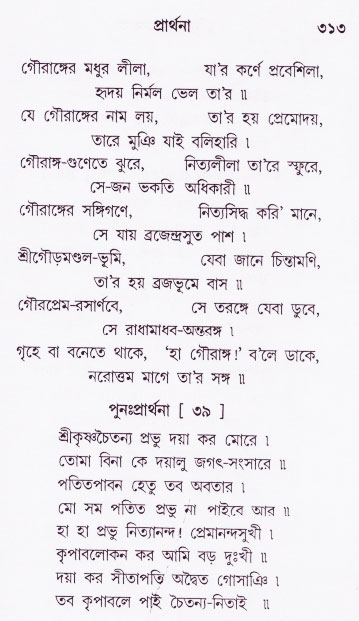 প্রার্থনা ৩১৩
গৌরাঙ্গের মধুর লীলা, যা'র কর্ণে প্রবেশিলা,
হৃদয় নির্মল ভেল তা'র ॥
যে গৌরাঙ্গের নাম লয়, তা'র হয় প্রেমোদয়,
তারে মুঞি যাই বলিহারি ।
গৌরাঙ্গ-গুণেতে ঝুরে, নিত্যলীলা তা'রে স্ফুরে,
সে-জন ভকতি অধিকারী ॥
গৌরাঙ্গের সঙ্গিগণে, নিত্যসিদ্ধ করি' মানে,
সে যায় ব্রজেন্দ্রসুত পাশ ।
শ্রীগৌড়মণ্ডল-ভূমি, যেবা জানে চিন্তামণি,
তা'র হয় ব্রজভূমে বাস ॥
গৌরপ্রেম-রসার্ণবে, সে তরঙ্গে যেবা ডুবে,
সে রাধামাধব-অন্তরঙ্গ ।
গৃহে বা বনেতে থাকে, 'হা গৌরাঙ্গ!' ব'লে ডাকে,
নরোত্তম মাগে তা'র সঙ্গ ॥
পুনঃপ্রার্থনা [ ৩৯ ]
শ্রীকৃষ্ণচৈতন্য প্রভু দয়া কর মোরে ।
তোমা বিনা কে দয়ালু জগৎ-সংসারে ॥
পতিতপাবন হেতু তব অবতার ।
মো সম পতিত প্রভু না পাইবে আর ॥
হা হা প্রভু নিত্যানন্দ! প্রেমানন্দসুখী ।
কৃপাবলোকন কর আমি বড় দুঃখী ॥
দয়া কর সীতাপতি অদ্বৈত গোসাঞি ।
তব কৃপাবলে পাই চৈতন্য-নিতাই ॥